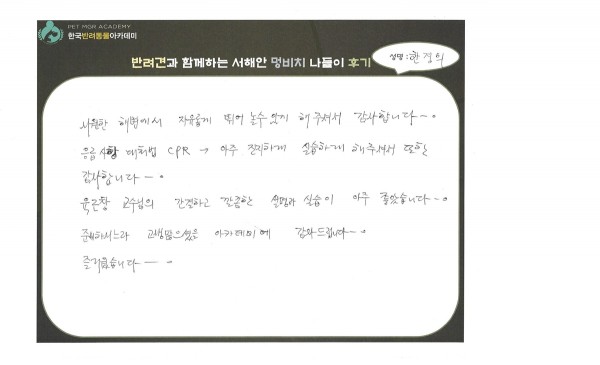 PET MGR ACADEMY
한국반려동물아카데미
반려견과 함께하는 서해안 멍비치 나들이 후기
성명 : 한정희
시원한 해변에서 자유롭게 뛰어 놀수 있게 해주셔서 감사합니다~.
응급사항 대처법 CPR → 아주 진지하게 실습하게 해주셔서 또한
감사합니다~.
육근창 교수님의 간결하고 깔끔한 설명과 실습이 아주 좋았습니다~.
준비하시느라 고생많으셨을 아카데미에 감사드립니다~.
즐거웠습니다~.